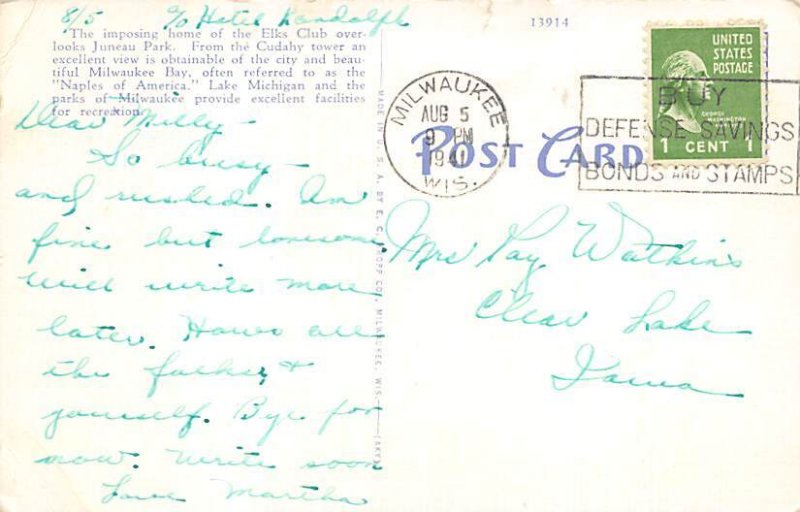 8/5 c/o Hotel Randolph
The imposing home of the Elks Club over-
looks Juneau Park. From the Cudahy tower an
excellent view is obtainable of the city and beau-
tiful Milwaukee Bay, often referred to as the
"Naples of America." Lake Michigan and the
parks of Milwaukee provide excellent facilities
for recreation.
Dear Milly -
So busy -
and rushed. Am
fine but lonesome
will write more
later. Hows all
the folks, &
yourself. Bye for
now. Write soon
Love Martha
MADE IN U. S. A. BY E. C. KROPP CO., MILWAUKEE, WIS.
13914
POST CARD
MILWAUKEE
AUG 5
9 PM
1941
WIS.
UNITED
STATES
POSTAGE
GEORGE
WASHINGTON
1 CENT 1
BUY
DEFENSE SAVINGS
BONDS AND STAMPS
Mrs Ray Watkins
Clear Lake
Iowa